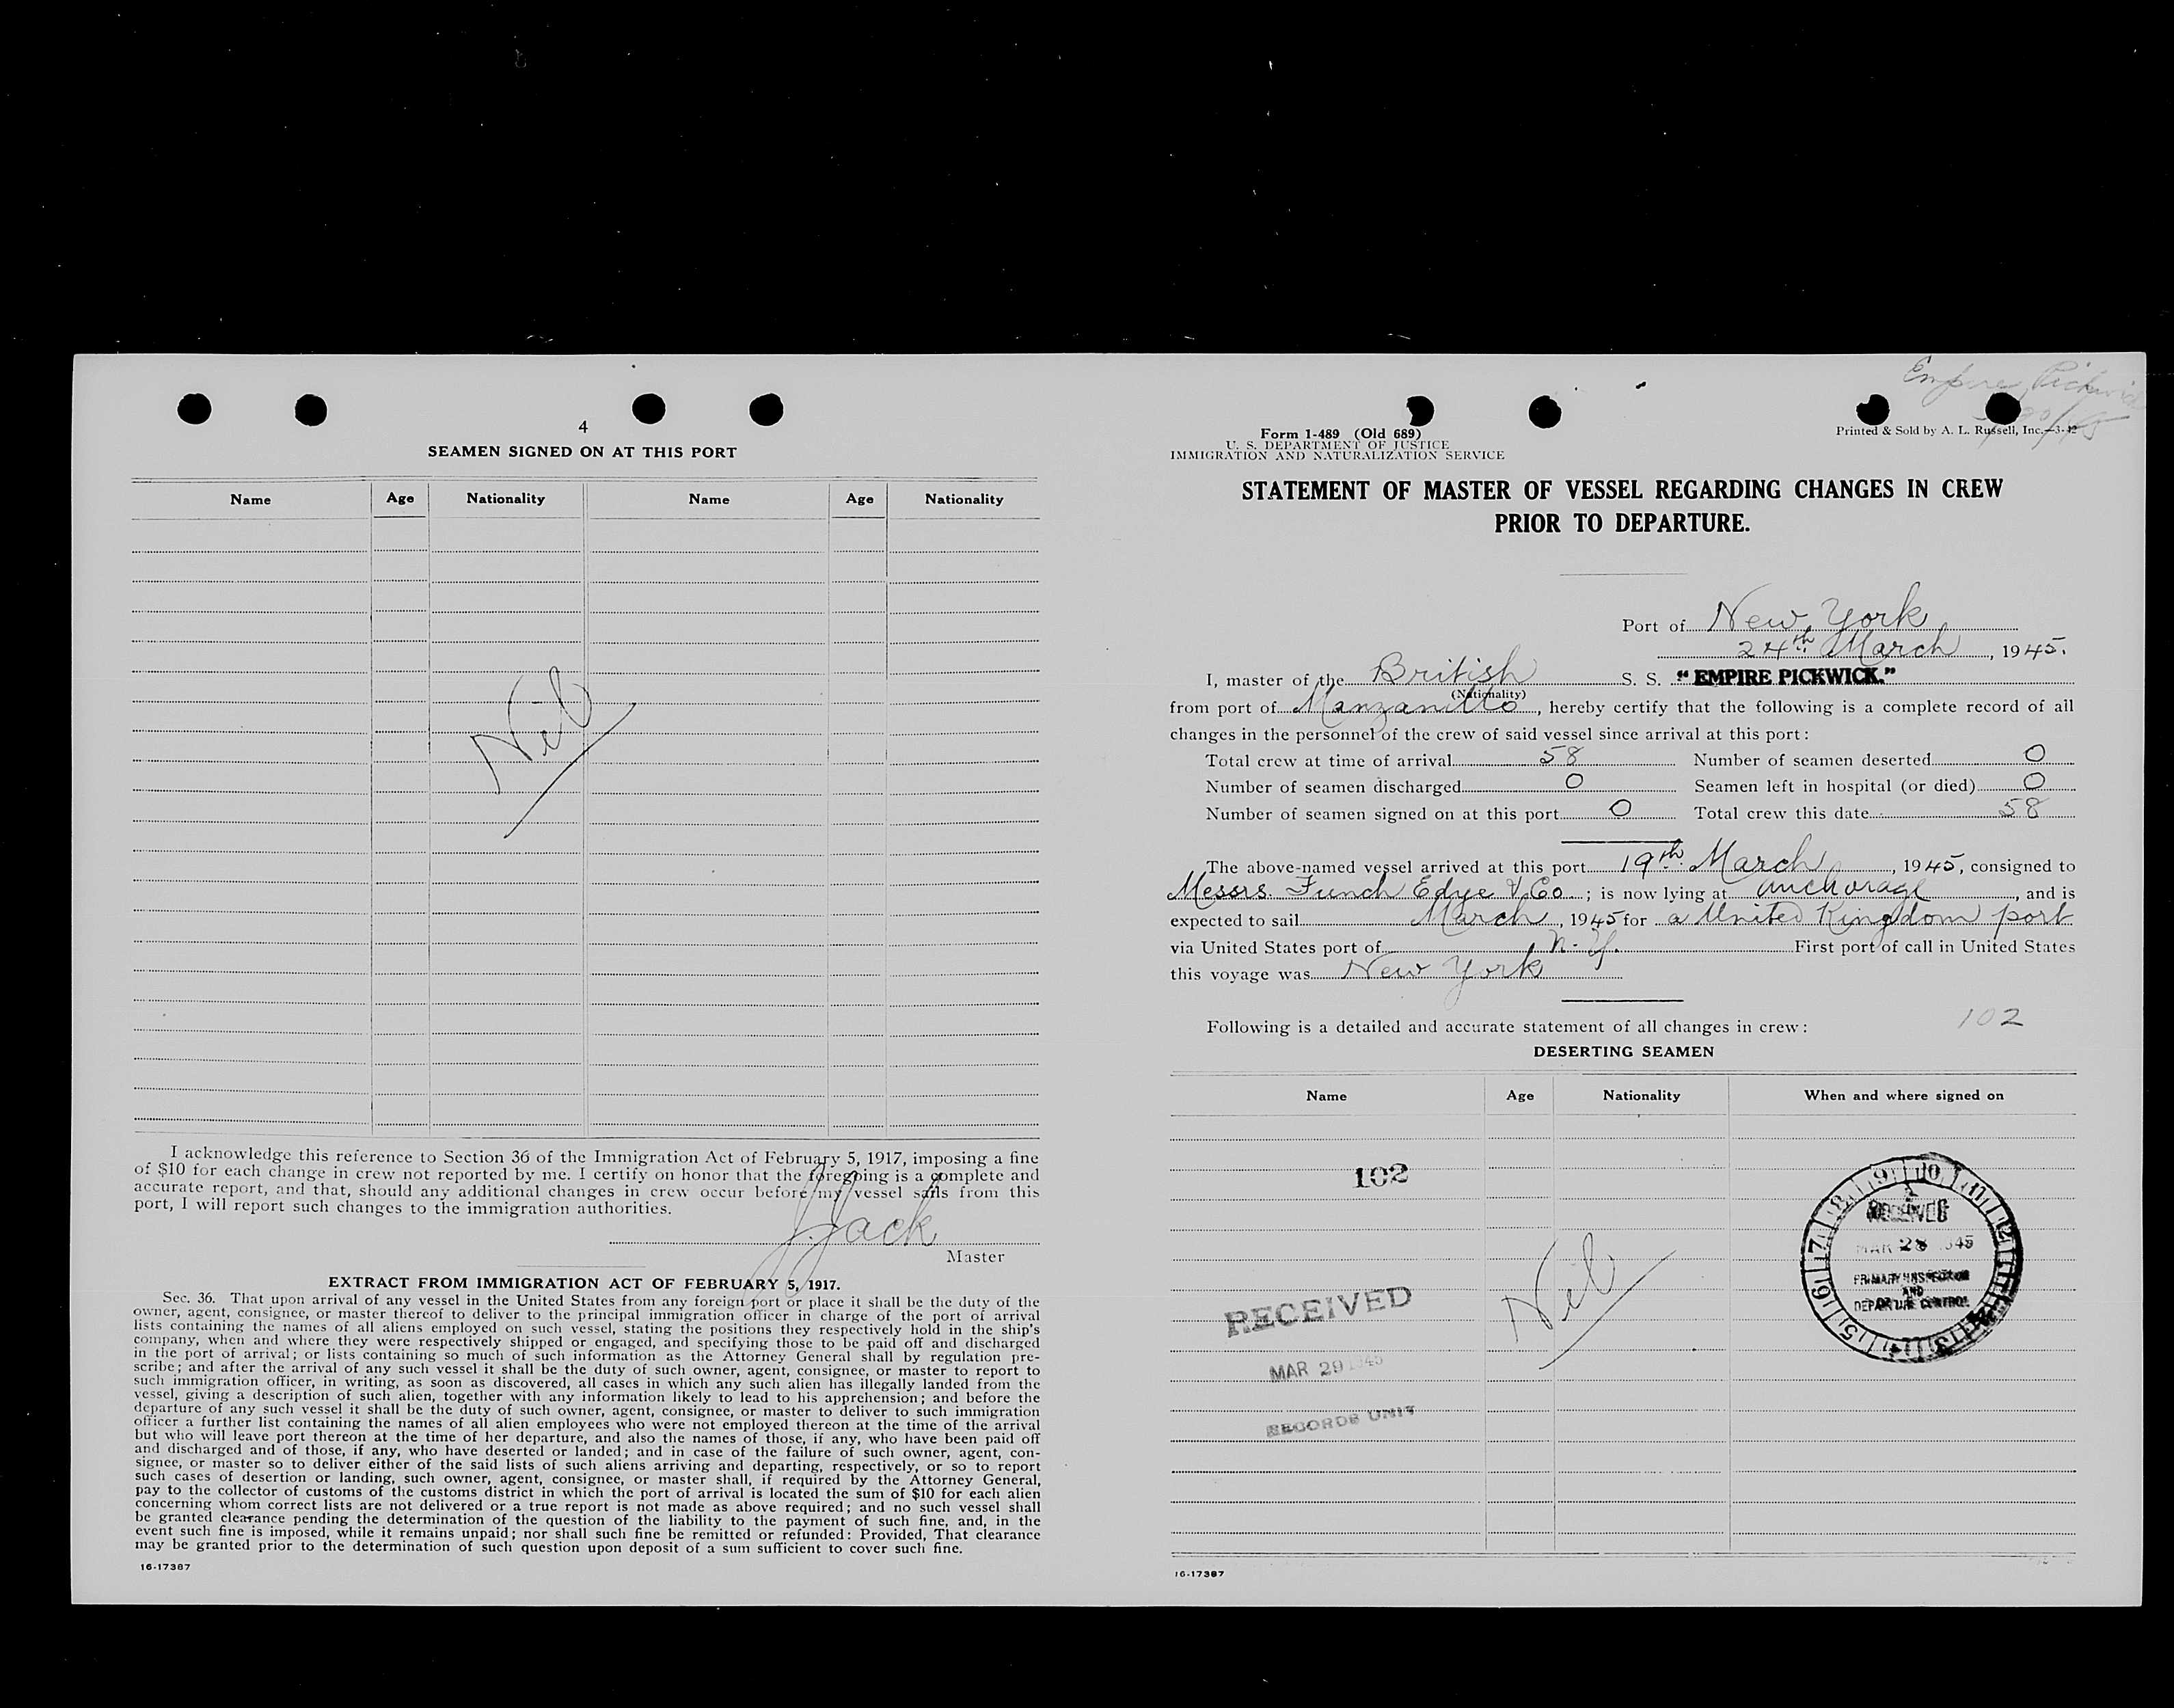 4
SEAMEN SIGNED ON AT THIS PORT
Name Age Nationality Name Age Nationality
Nil
I acknowledge this reference to Section 36 of the Immigration Act of February 5, 1917, imposing a fine
of $10 for each change in crew not reported by me. I certify on honor that the foregoing is a complete and
accurate report, and that, should any additional changes in crew occur before my vessel sails from this
port, I will report such changes to the immigration authorities.
J. Jack
Master
EXTRACT FROM IMMIGRATION ACT OF FEBRUARY 5, 1917.
Sec. 36. That upon arrival of any vessel in the United States from any foreign port or place it shall be the duty of the
owner, agent, consignee, or master thereof to deliver to the principal immigration officer in charge of the port of arrival
lists containing the names of all aliens employed on such vessel, stating the positions they respectively hold in the ship's
company, when and where they were respectively shipped or engaged, and specifying those to be paid off and discharged
in the port of arrival; or lists containing so much of such information as the Attorney General shall by regulation pre-
scribe; and after the arrival of any such vessel it shall be the duty of such owner, agent, consignee, or master to report to
such immigration officer, in writing, as soon as discovered, all cases in which any such alien has illegally landed from the
vessel, giving a description of such alien, together with any information likely to lead to his apprehension; and before the
departure of any such vessel it shall be the duty of such owner, agent, consignee, or master to deliver to such immigration
officer a further list containing the names of all alien employees who were not employed thereon at the time of the arrival
but who will leave port thereon at the time of her departure, and also the names of those, if any, who have been paid off
and discharged and of those, if any, who have deserted or landed; and in case of the failure of such owner, agent, con-
signee, or master so to deliver either of the said lists of such aliens arriving and departing, respectively, or so to report
such cases of desertion or landing, such owner, agent, consignee, or master shall, if required by the Attorney General,
pay to the collector of customs of the customs district in which the port of arrival is located the sum of $10 for each alien
concerning whom correct lists are not delivered or a true report is not made as above required; and no such vessel shall
be granted clearance pending the determination of the question of the liability to the payment of such fine, and, in the
event such fine is imposed, while it remains unpaid; nor shall such fine be remitted or refunded: Provided, That clearance
may be granted prior to the determination of such question upon deposit of a sum sufficient to cover such fine.
16-17387
Empire Pickwick
Form 1-489 (Old 689)
U. S. DEPARTMENT OF JUSTICE
IMMIGRATION AND NATURALIZATION SERVICE
Printed & Sold by A. L. Russell, Inc.—3-42
STATEMENT OF MASTER OF VESSEL REGARDING CHANGES IN CREW
PRIOR TO DEPARTURE.
Port of New York
24th March, 1945.
I, master of the British S. S. "EMPIRE PICKWICK."
(Nationality)
from port of Manzanillo, hereby certify that the following is a complete record of all
changes in the personnel of the crew of said vessel since arrival at this port:
Total crew at time of arrival 58 Number of seamen deserted 0
Number of seamen discharged 0 Seamen left in hospital (or died) 0
Number of seamen signed on at this port 0 Total crew this date 58
The above-named vessel arrived at this port 19th March, 1945, consigned to
Messrs. Funch Edye & Co; is now lying at anchorage, and is
expected to sail March, 1945 for a United Kingdom port
via United States port of N. Y. First port of call in United States
this voyage was New York
Following is a detailed and accurate statement of all changes in crew: 102
DESERTING SEAMEN
Name Age Nationality When and where signed on
102
Nil
RECEIVED
MAR 29 1945
RECORDS UNIT
RECEIVED
MAR 28 1945
PRIMARY INSPECTION
AND
DEPARTURE CONTROL
16-17387